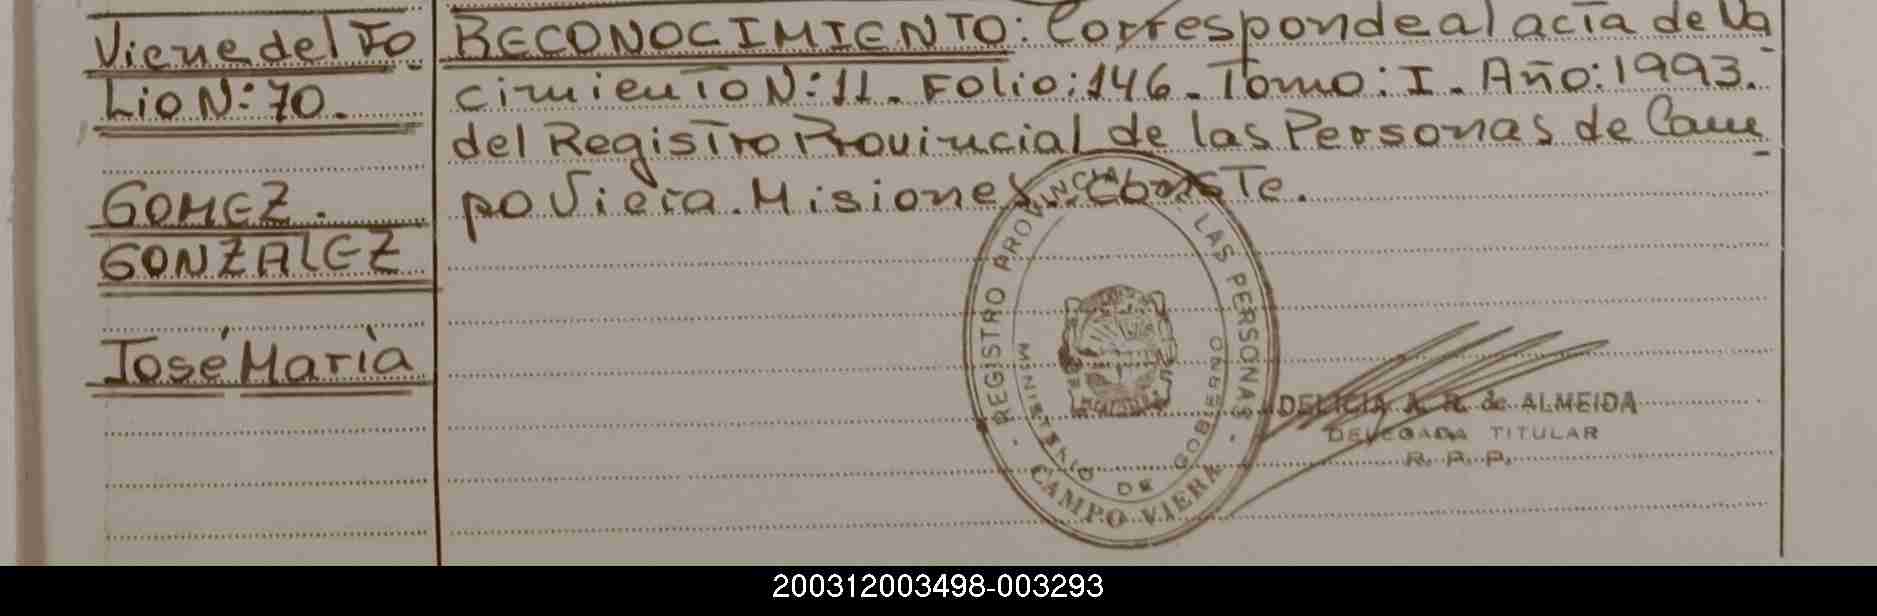 Viene del Fo
Lio N:70.
GOMEZ.
GONZALEZ
José María
RECONOCIMIENTO: Corresponde al acta de Na
cimiento N:11. Folio:146. Tomo: I. Año:1993.
del Registro Provincial de las Personas de Cam
po Viera. Misiones. Conste.
- REGISTRO PROVINCIAL LAS PERSONAS -
MINISTERIO DE GOBIERNO
CAMPO VIERA
DELICIA A. R. de ALMEIDA
DELEGADA TITULAR
R. P. P.
200312003498-003293